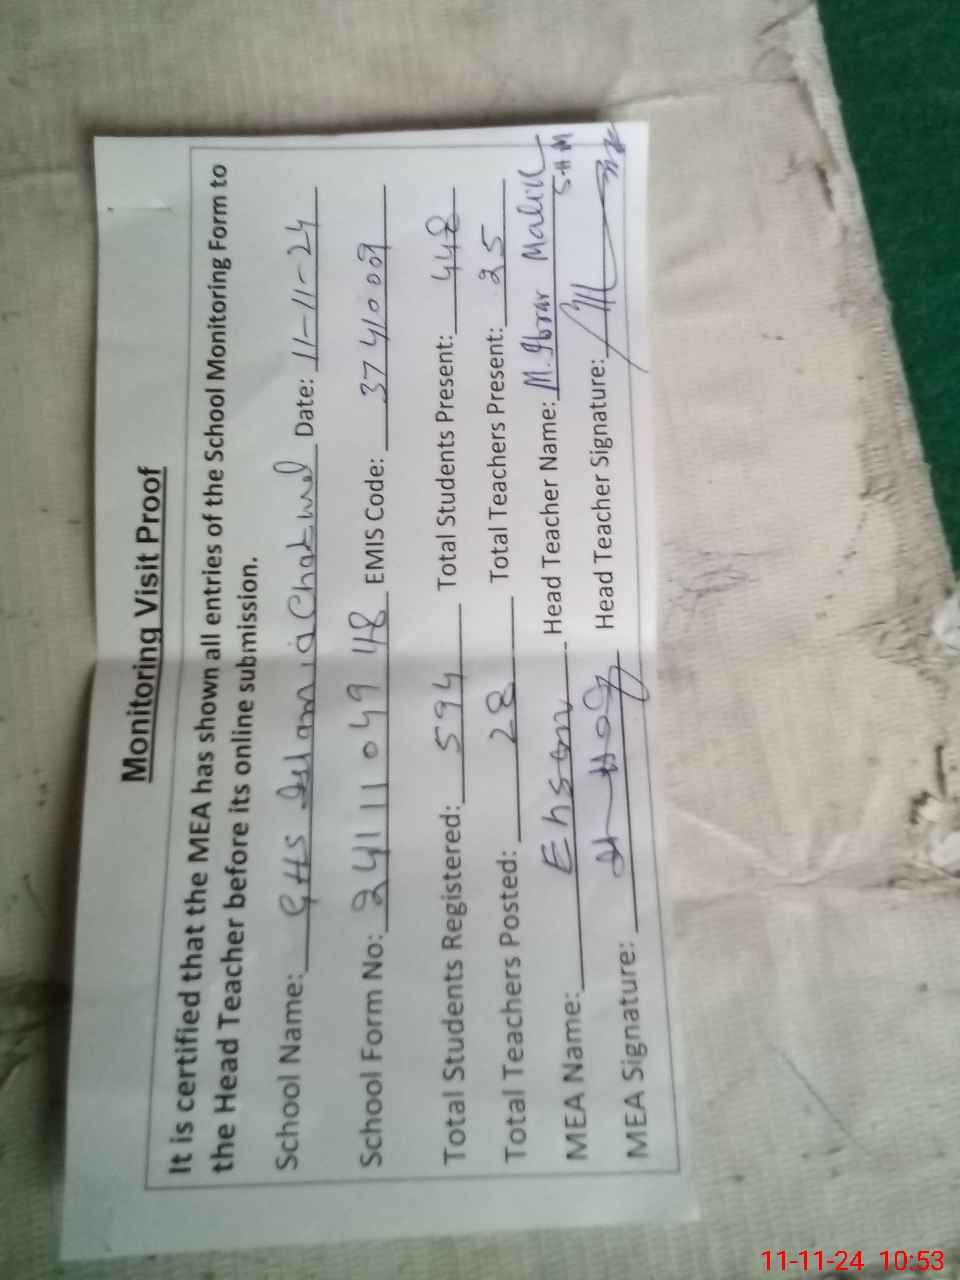 Monitoring Visit Proof
It is certified that the MEA has shown all entries of the School Monitoring Form to
the Head Teacher before its online submission.
School Name: GHS Islamia Chakwal Date: 11-11-24
School Form No: 2411104948 EMIS Code: 37410009
Total Students Registered: 594 Total Students Present: 448
Total Teachers Posted: 28 Total Teachers Present: 25
MEA Name: Ehsan Head Teacher Name: M. Ibrar Malik
SHM
MEA Signature: Head Teacher Signature:
11-11-24 10:53